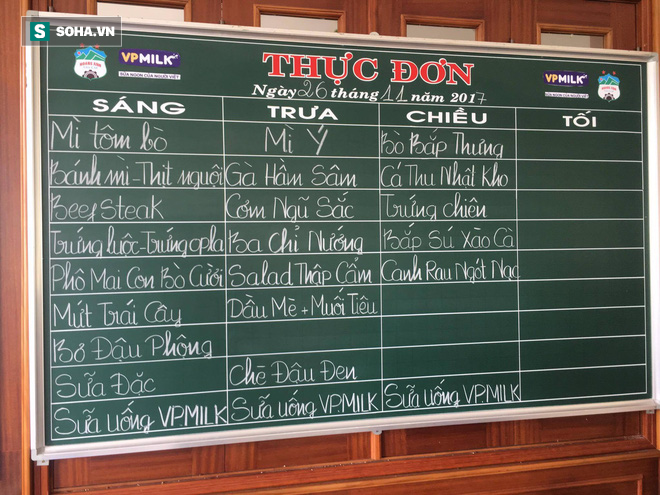 S SOHA.VN
HOANG ANH
VPMILK
SỮA NGON CỦA NGƯỜI VIỆT
THỰC ĐƠN
VPMILK
Ngày 26 tháng 11 năm 2017
SÁNG TRƯA CHIỀU TỐI
Mì tôm bò Mì Ý Bò Bắp Thưng
Bánh mì - Thịt nguội Gà Hầm Sâm Cá Thu Nhật Kho
Beef Steak Cơm Ngũ Sắc Trứng chiên
Trứng luộc - Trứng opla Ba Chỉ Nướng Bắp Sú Xào Cà
Phô Mai Con Bò Cười Salad Thập Cẩm Canh Rau Ngót Nạc
Mứt Trái Cây Dầu Mè + Muối Tiêu
Bơ Đậu Phộng
Sữa Đặc Chè Đậu Đen
Sữa uống VP.MILK Sữa uống VP.MILK Sữa uống VP.MILK